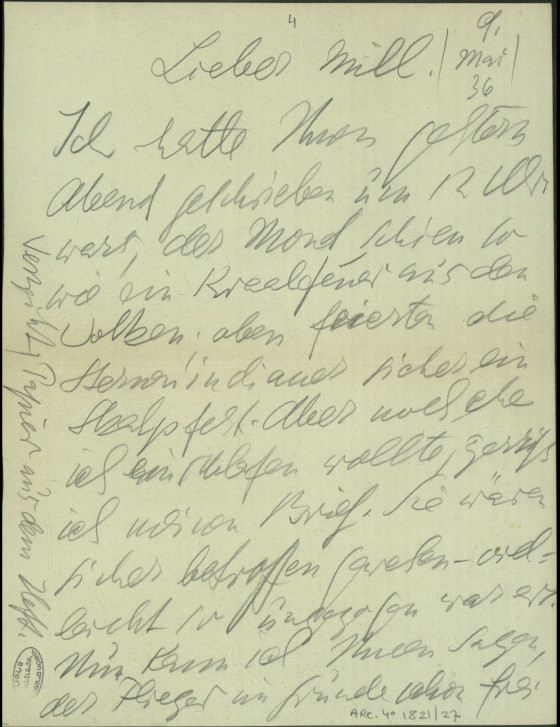 4
9.
Mai
36
Lieber Mill.
Ich hatte Ihnen gestern
Abend geschrieben um 12 Uhr
wars, der Mond schien so
wie ein aus den
Wolken, oben feierten die
Sternenindianer sicher ein
Skalpfest. Aber noch ehe
ich einschlafen wollte, zerriss
ich meinen Brief. Sie wären
sicher betroffen gewesen - viel=
leicht so ungezogen war er.
Nun kann ich Ihnen sagen,
der Flieger im Grunde frei
Verzeihung Papier aus dem Heft.
ARC. 4° 1821/27